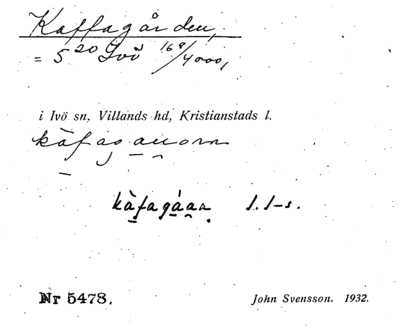 Kaffagården,
= 5 20 Ivö 168/4000,
i Ivö sn, Villands hd, Kristianstads l.
kàfagáan l. l-s.
Nr 5478. John Svensson. 1932.